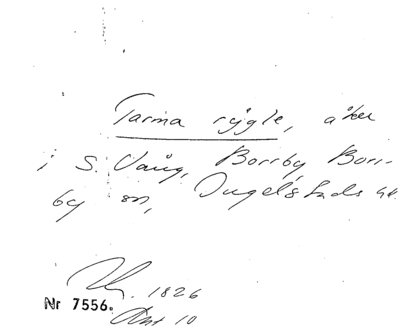 Tarma rygle, åker
i S. Vång, Borrby, Borr-
by sn, Ingelstads hd.
1826
Nr 7556.
Akt 10